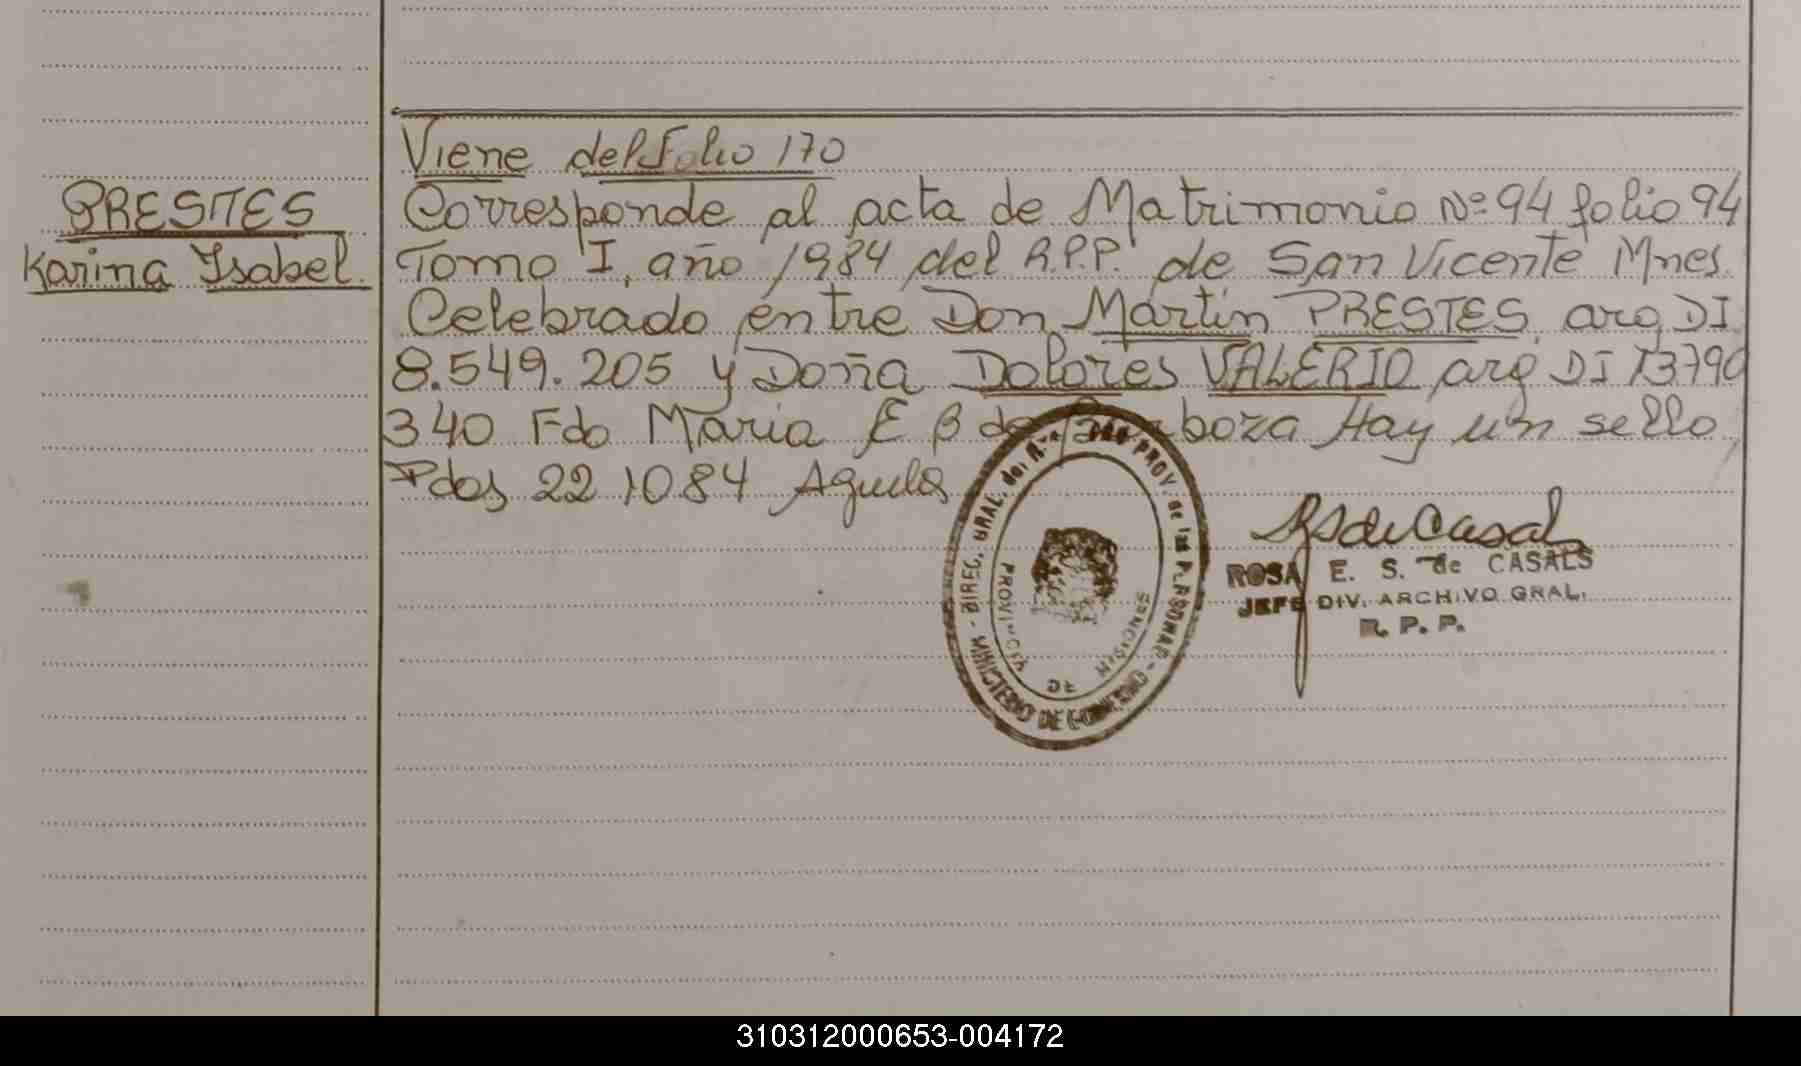 Viene del Folio 170
PRESTES
Karina Ysabel.
Corresponde al acta de Matrimonio Nº 94 folio 94
Tomo I, año 1984 del R.P.P. de San Vicente Mnes.
Celebrado entre Don Martín PRESTES, arg DI
8.549.205 y Doña Dolores VALERIO arg DI 13790
340 Fdo María E B de Barboza Hay un sello,
Pdas 22 10 84 Aguela
MINISTERIO DE GOBIERNO - DIREC. GRAL. del PROV. de las PERSONAS -
PROVINCIA DE MISIONES
ROSA E. S. de CASALS
JEFE DIV. ARCHIVO GRAL.
R. P. P.
310312000653-004172